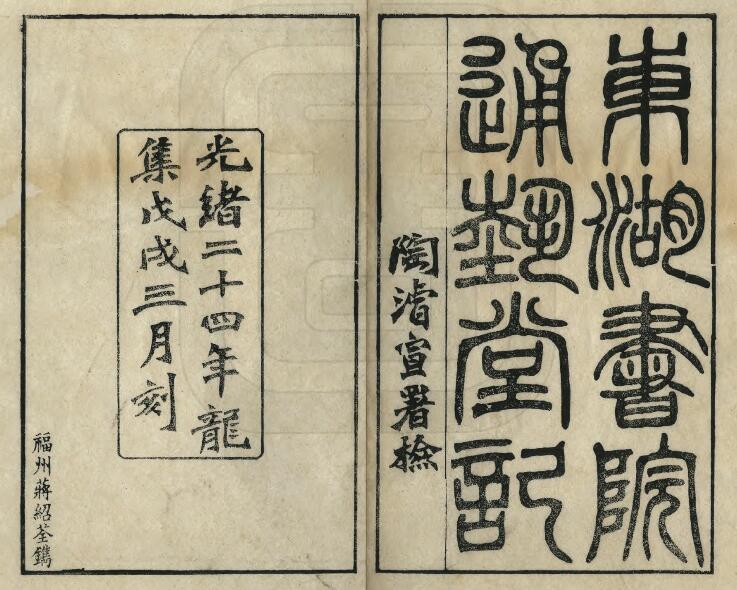 東湖書院
通埶堂記
陶濬宣署檢
光緒二十四年龍
集戊戌三月刻
福州蔣紹荃鐫